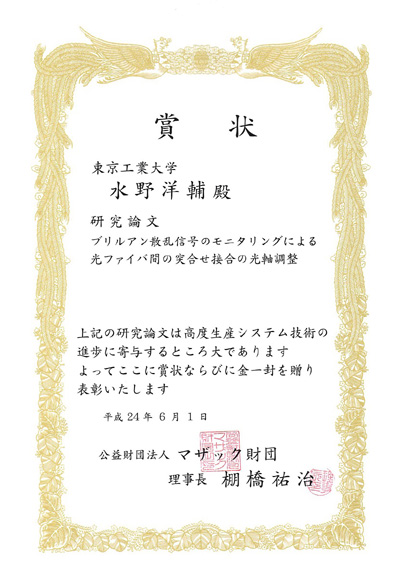 賞状
東京工業大学
水野洋輔殿
研究論文
ブリルアン散乱信号のモニタリングによる
光ファイバ間の突合せ接合の光軸調整
上記の研究論文は高度生産システム技術の
進歩に寄与するところ大であります
よってここに賞状ならびに金一封を贈り
表彰いたします
平成24年6月1日
公益財団法人 マザック財団
理事長 棚橋祐治